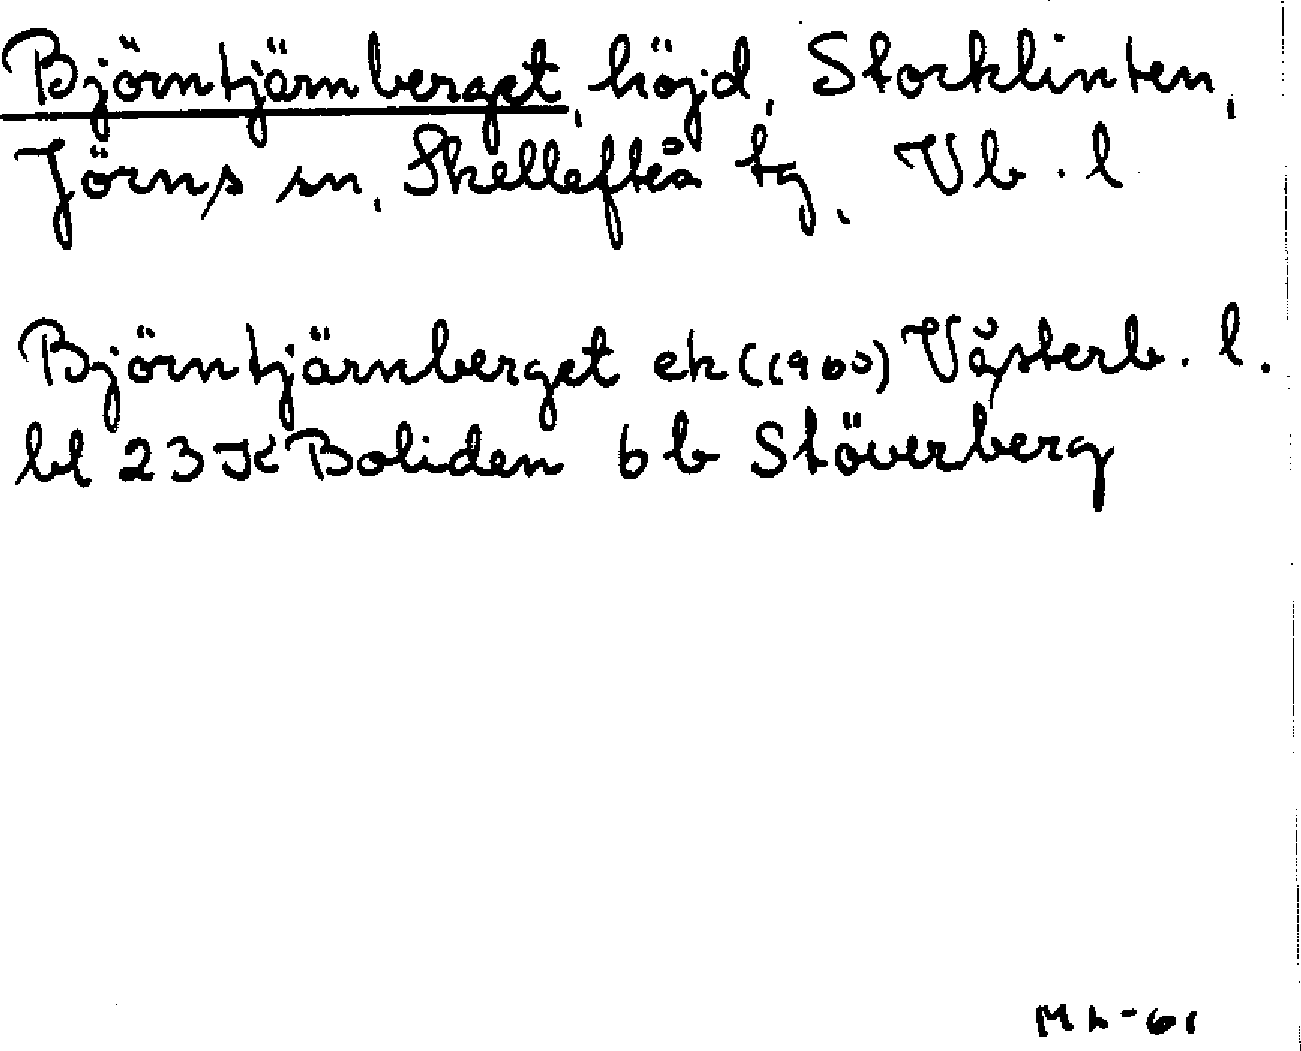 Björntjärnberget, höjd, Stocklinten,
Jörns sn, Skellefteå tg, Vb. l
Björntjärnberget ek (1960) Västerb. l.
bl 23 K Boliden 6 b Stöverberg
ML-61